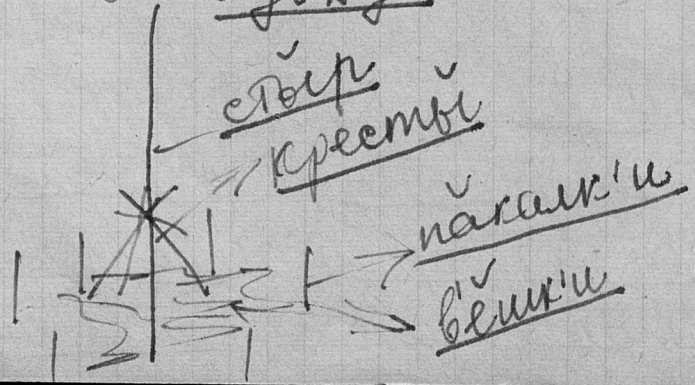 стӧыр
кресты̆
пӑкалк'и
в'ӗшк'и